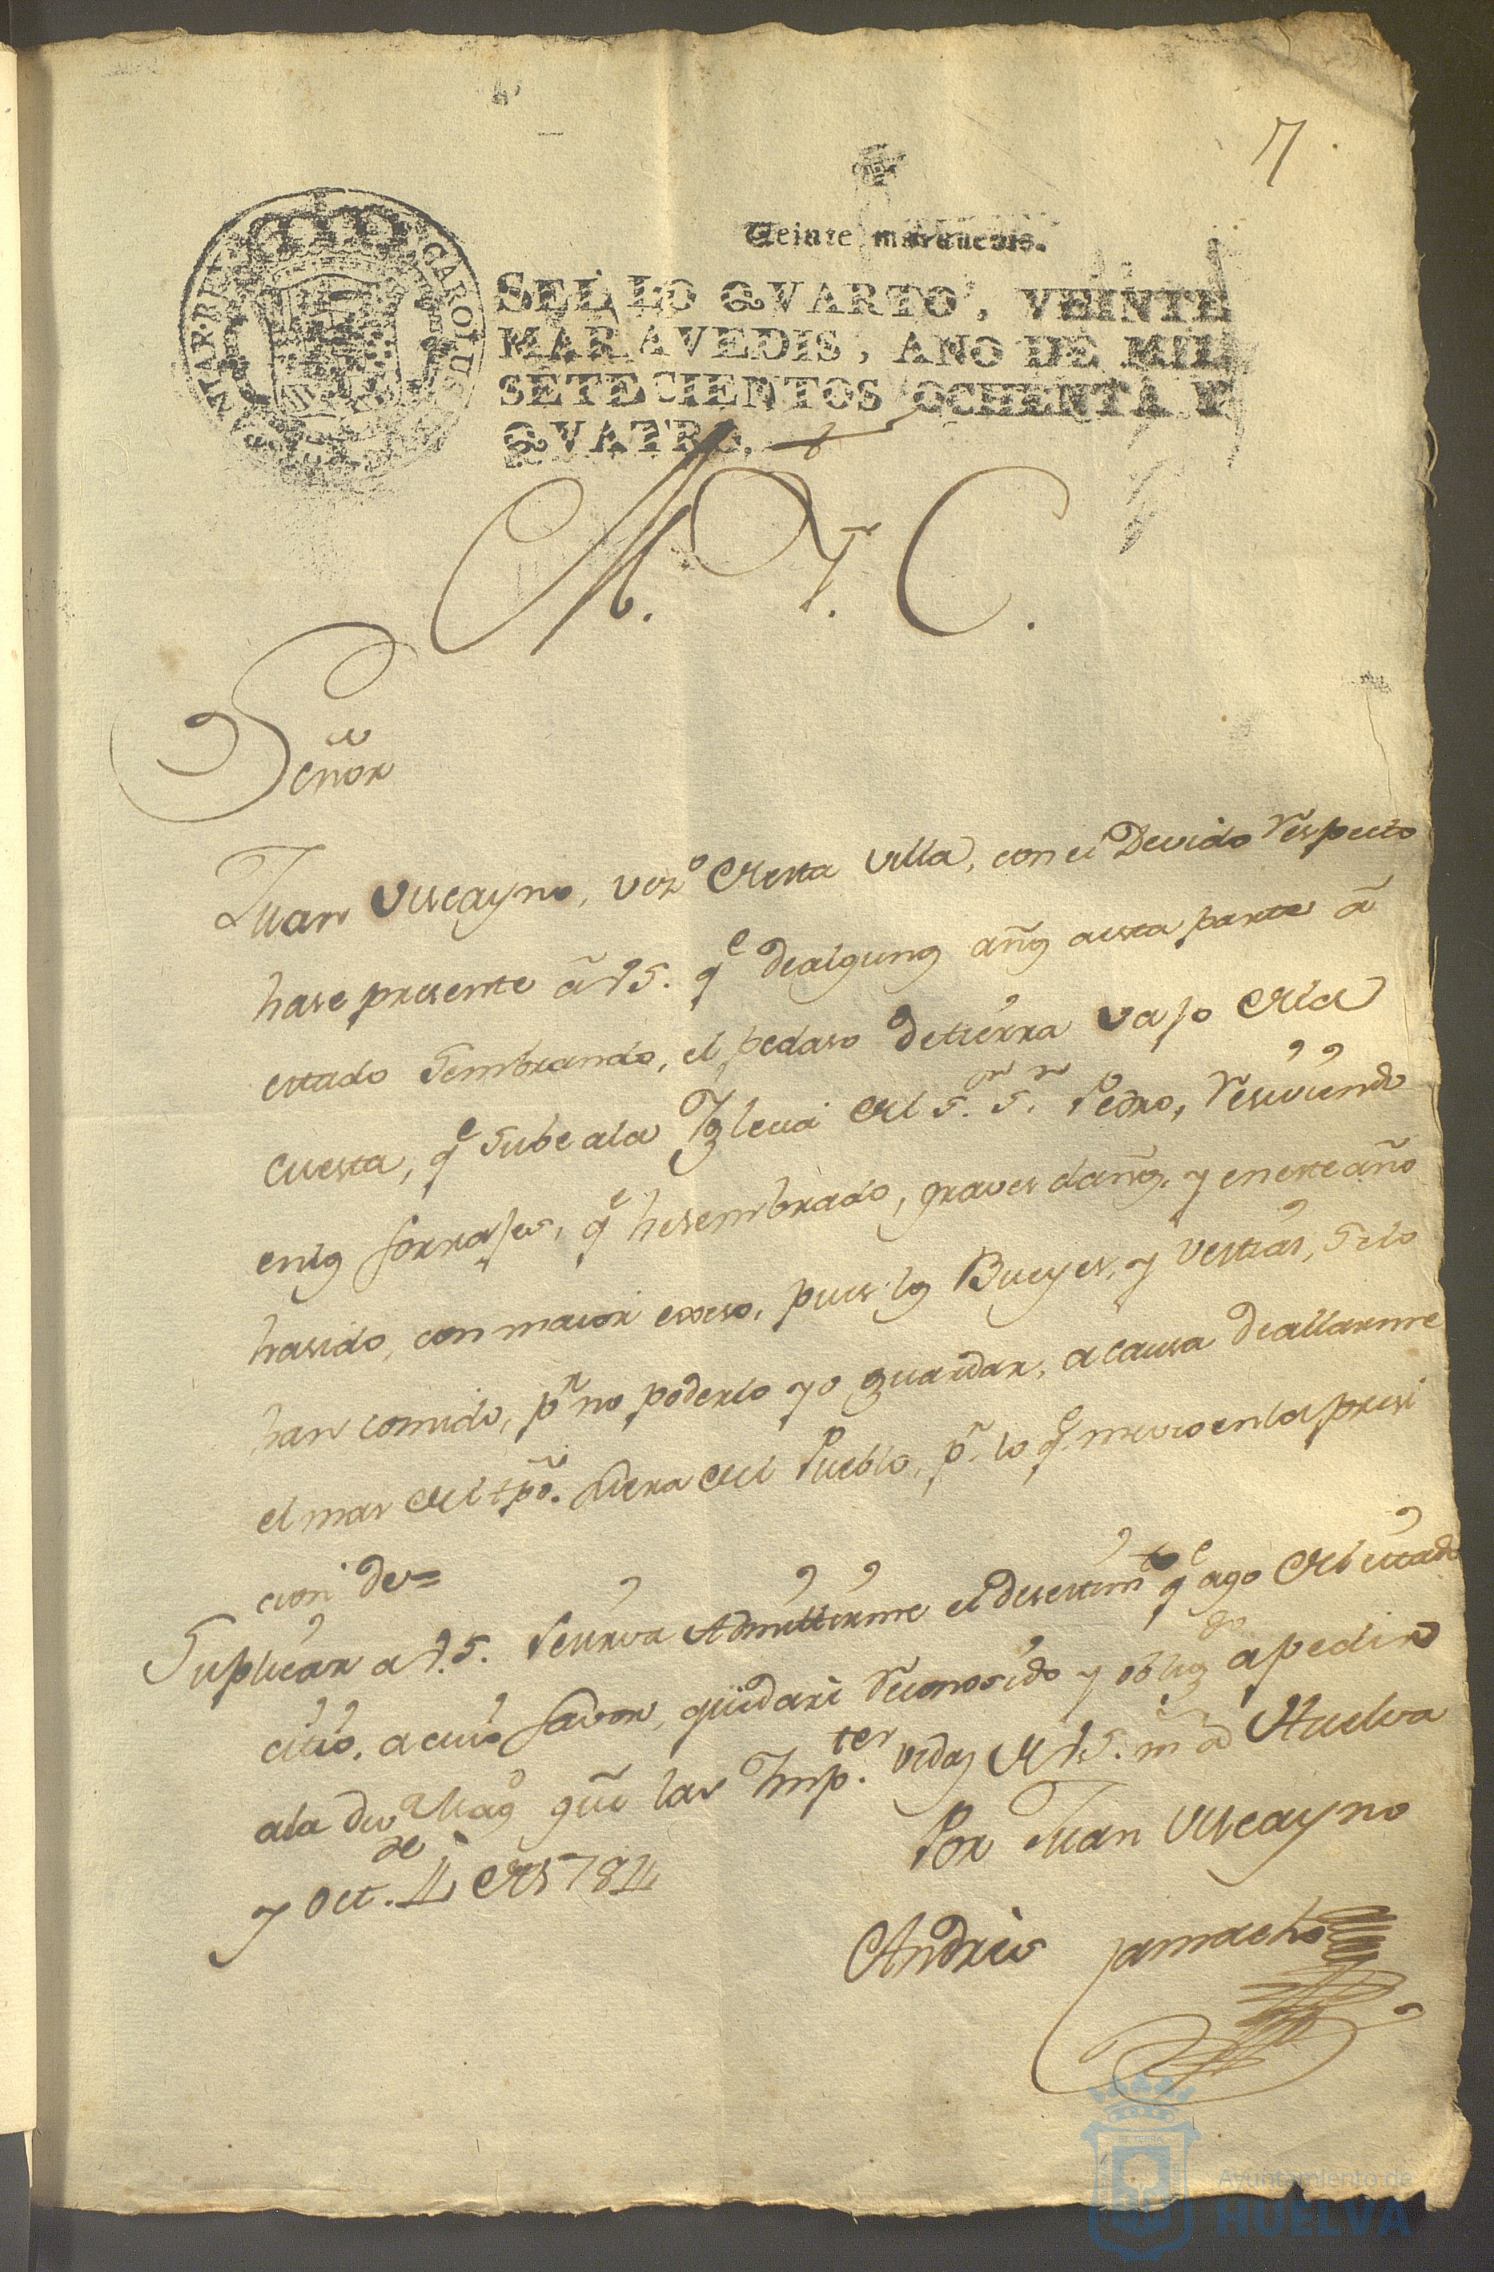 7
Veinte maravedis.
SELLO QVARTO, VEINTE
MARAVEDIS, AÑO DE MIL
SETECIENTOS OCHENTA Y
QVATRO.
CAROLUS
M. Y. C.
Señor
Juan Viscayno, vezº de esta villa, con el Devido respecto
hase presente â VS. qe de algunos años a esta parte â
estado sembrando, el pedaso de tierra vajo de la
cuesta, qe sube a la Iglecia del Sor. Sn. Pedro, resiviendo
en los forrajes, qe he sembrado, graves daños, y en este año
ha sido, con maior exseso, pues los Bueyes, y vestias, se lo
han comido, pr no poderlo yo guardar, a causa de allarme
el mas del tpõ. fuera del Pueblo, pr. lo qe. me veo en la presi
cion de=
Suplicar a V.S. se sirva Admittirme el desestimto qe ago del citado
citio, a cuio favor, quedarè reconosido y obligdo a pedir
a la Diva Magd que las Impter. vida de V.S. ms as Huelva
y Octe. 4 de 1784
Por Juan Viscayno
Andrès Camacho
Ayuntamiento de
HUELVA